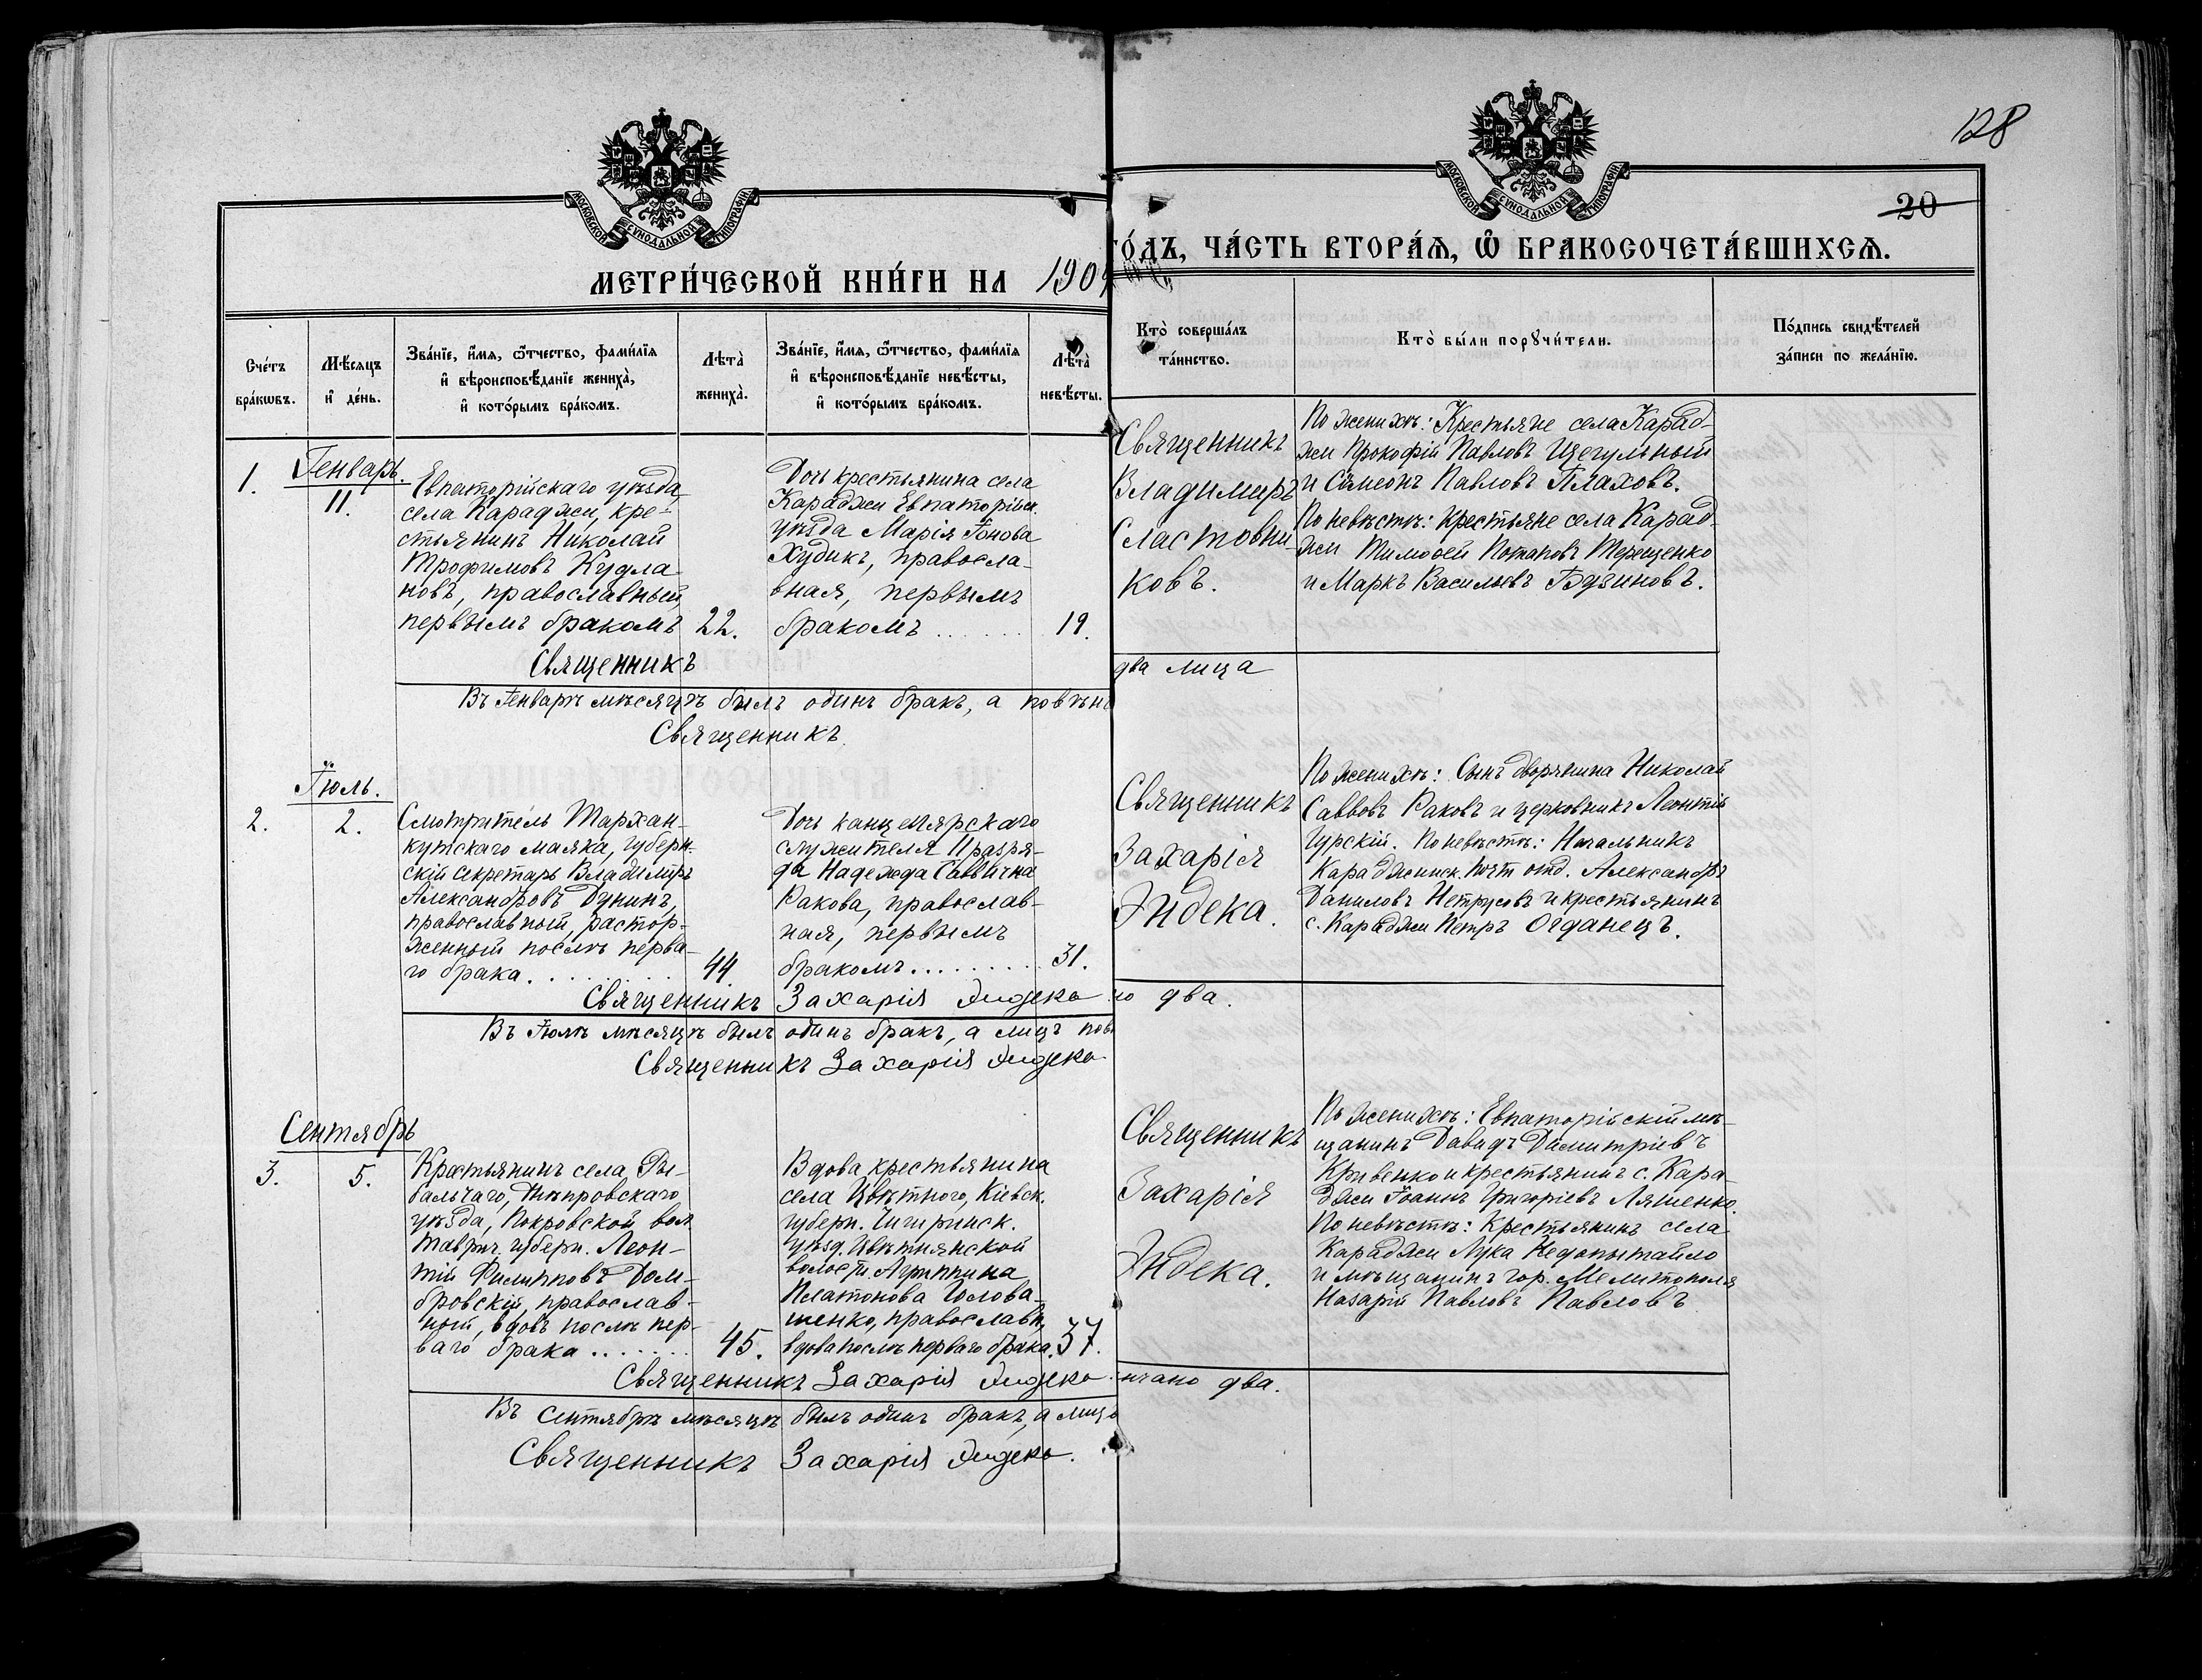 128
20
МОСКОВСКОЙ СѴНОДАЛЬНОЙ ТИПОГРАФІИ
МОСКОВСКОЙ СѴНОДАЛЬНОЙ ТИПОГРАФІИ
МЕТРИ́ЧЕСКОЙ КНИ́ГИ НА 190
ГО́ДЪ, ЧА́СТЬ ВТОРА́Ѧ, Ѽ БРАКОСОЧЕТА́ВШИХСѦ.
Сче́тъ
бра́кѡвъ.
Мѣ́сяцъ
и҆ де́нь.
Зва́нїе, и҆́мя, ѻ҆́тчество, фами́лїя
и҆ вѣроисповѣ́данїе жениха̀,
и҆ кото́рымъ бра́комъ.
Лѣта̀
жениха̀.
Зва́нїе, и҆́мя, ѻ҆́тчество, фами́лїя
и҆ вѣроисповѣ́данїе невѣ́сты,
и҆ кото́рымъ бра́комъ.
Лѣта̀
невѣ́сты.
Кто̀ соверша́лъ
та́инство.
Кто̀ бы́ли порꙋчи́тели.
По́дпись свидѣ́телей
за́писи по жела́нїю.
1.
Генварь.
11.
Евпаторійскаго уѣзда,
села Караджи, кре-
стьянинъ Николай
Трофимовъ Кудла-
новъ, православный,
первымъ бракомъ 22.
Дочь крестьянина села
Караджи Евпаторійск.
уѣзда Марія Іонова
Худикъ, правосла-
вная, первымъ
бракомъ ...... 19.
Священникъ
Владимиръ
Сластовни-
ковъ.
По женихѣ: Крестьяне села Карад-
жи Прокофій Павловъ Щегульный
и Сѵмеонъ Павловъ Плаховъ.
По невѣстѣ: Крестьяне села Карад-
жи Тимоѳей Потаповъ Терещенко
и Маркъ Васильевъ Бузиновъ.
Священникъ
Въ Генварѣ мѣсяцѣ былъ одинъ бракъ, а повѣн
два лица
Священникъ
Іюль.
2. 2.
Смотритель Тархан-
кутскаго маяка, губерн-
скій секретарь Владимиръ
Александровъ Дунинъ,
православный, растор-
женный послѣ перва-
го брака......... 44.
Дочь канцелярскаго
служителя II разря-
да Надежда Саввична
Ракова, православ-
ная, первымъ
бракомъ......... 31.
Священникъ
Захарія
Эндека.
По женихѣ: Сынъ дворянина Николай
Саввовъ Раковъ и церковникъ Леонтій
Гурскій. По невѣстѣ: Начальникъ
Караджинск. почт. отд. Александръ
Даниловъ Петрусовъ и крестьянинъ
с. Караджи Петръ Огданецъ.
Священникъ Захарія Эндека
Въ Іюлѣ мѣсяцѣ былъ одинъ бракъ, а лицъ пов
но два.
Священникъ Захарія Эндека
Сентябрь
3. 5.
Крестьянинъ села Ры-
бальчаго, Днѣпровскаго
уѣзда, Покровской вол.
Таврич. губерн. Леон-
тій Филипповъ Дом-
бровскій, православ-
ный, вдовъ послѣ пер-
ваго брака ....... 45.
Вдова крестьянина
села Цвѣтного, Кіевск.
губерн. Чигиринск.
уѣзд. Цвѣтнянской
волости Агриппина
Платонова Голова-
шенко, православн.,
вдова послѣ перваго брака. 37.
Священникъ
Захарія
Эндека.
По женихѣ: Евпаторійскій мѣ-
щанинъ Давидъ Димитріевъ
Кривенко и крестьянинъ с. Кара-
джи Іоаннъ Григоріевъ Ляшенко.
По невѣстѣ: Крестьянинъ села
Караджи Лука Недопытайло
и мѣщанинъ гор. Мелитополя
Назарій Павловъ Павловъ
Священникъ Захарія Эндека
Въ Сентябрѣ мѣсяцѣ былъ одинъ бракъ, а лицъ
нчано два.
Священникъ Захарія Эндека.